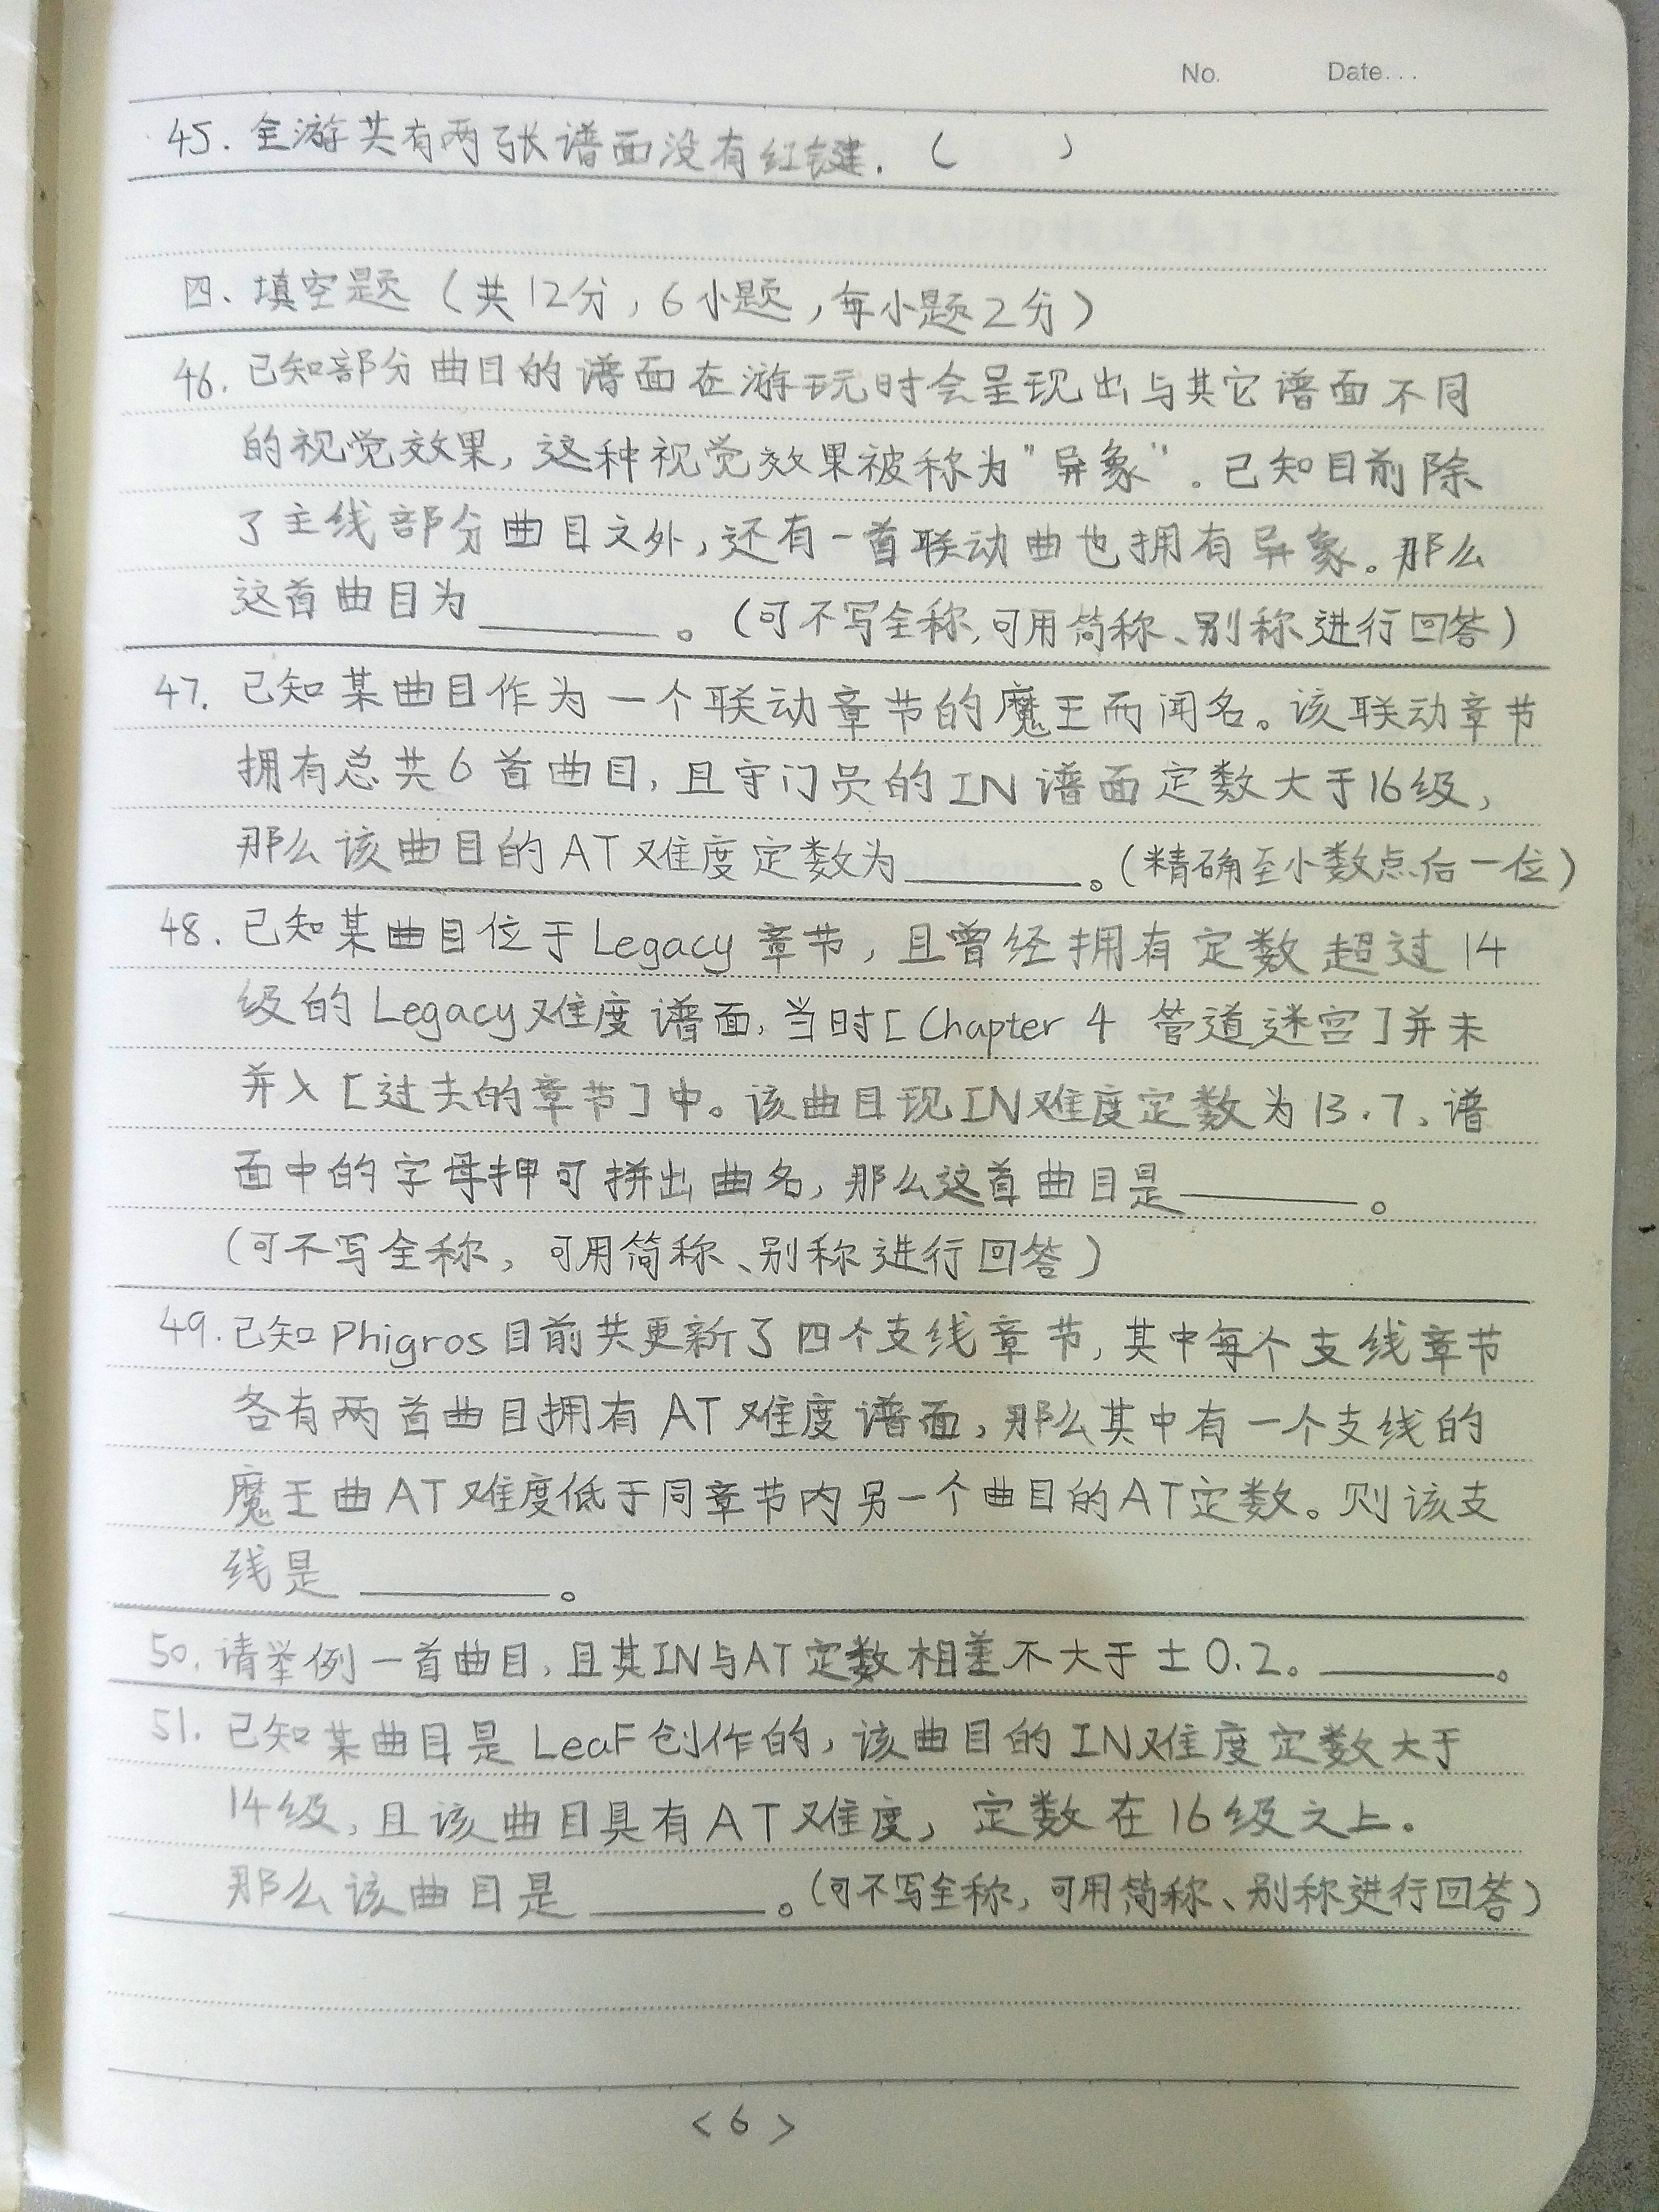 No. Date...
45. 全游共有两张谱面没有红键. ( )
四、填空题（共12分, 6小题, 每小题2分）
46. 已知部分曲目的谱面在游玩时会呈现出与其它谱面不同
的视觉效果, 这种视觉效果被称为"异象"。已知目前除
了主线部分曲目之外, 还有一首联动曲也拥有异象。那么
这首曲目为______。（可不写全称, 可用简称、别称进行回答）
47. 已知某曲目作为一个联动章节的魔王而闻名。该联动章节
拥有总共6首曲目, 且守门员的IN谱面定数大于16级,
那么该曲目的AT难度定数为______。（精确至小数点后一位）
48. 已知某曲目位于Legacy章节, 且曾经拥有定数超过14
级的Legacy难度谱面, 当时[Chapter 4 管道迷宫]并未
并入[过去的章节]中。该曲目现IN难度定数为13.7、谱
面中的字母押可拼出曲名, 那么这首曲目是______。
（可不写全称, 可用简称、别称进行回答）
49. 已知Phigros目前共更新了四个支线章节, 其中每个支线章节
各有两首曲目拥有AT难度谱面, 那么其中有一个支线的
魔王曲AT难度低于同章节内另一个曲目的AT定数。则该支
线是______。
50. 请举例一首曲目, 且其IN与AT定数相差不大于±0.2。______。
51. 已知某曲目是LeaF创作的, 该曲目的IN难度定数大于
14级, 且该曲目具有AT难度, 定数在16级之上.
那么该曲目是______。（可不写全称, 可用简称、别称进行回答）
<6>